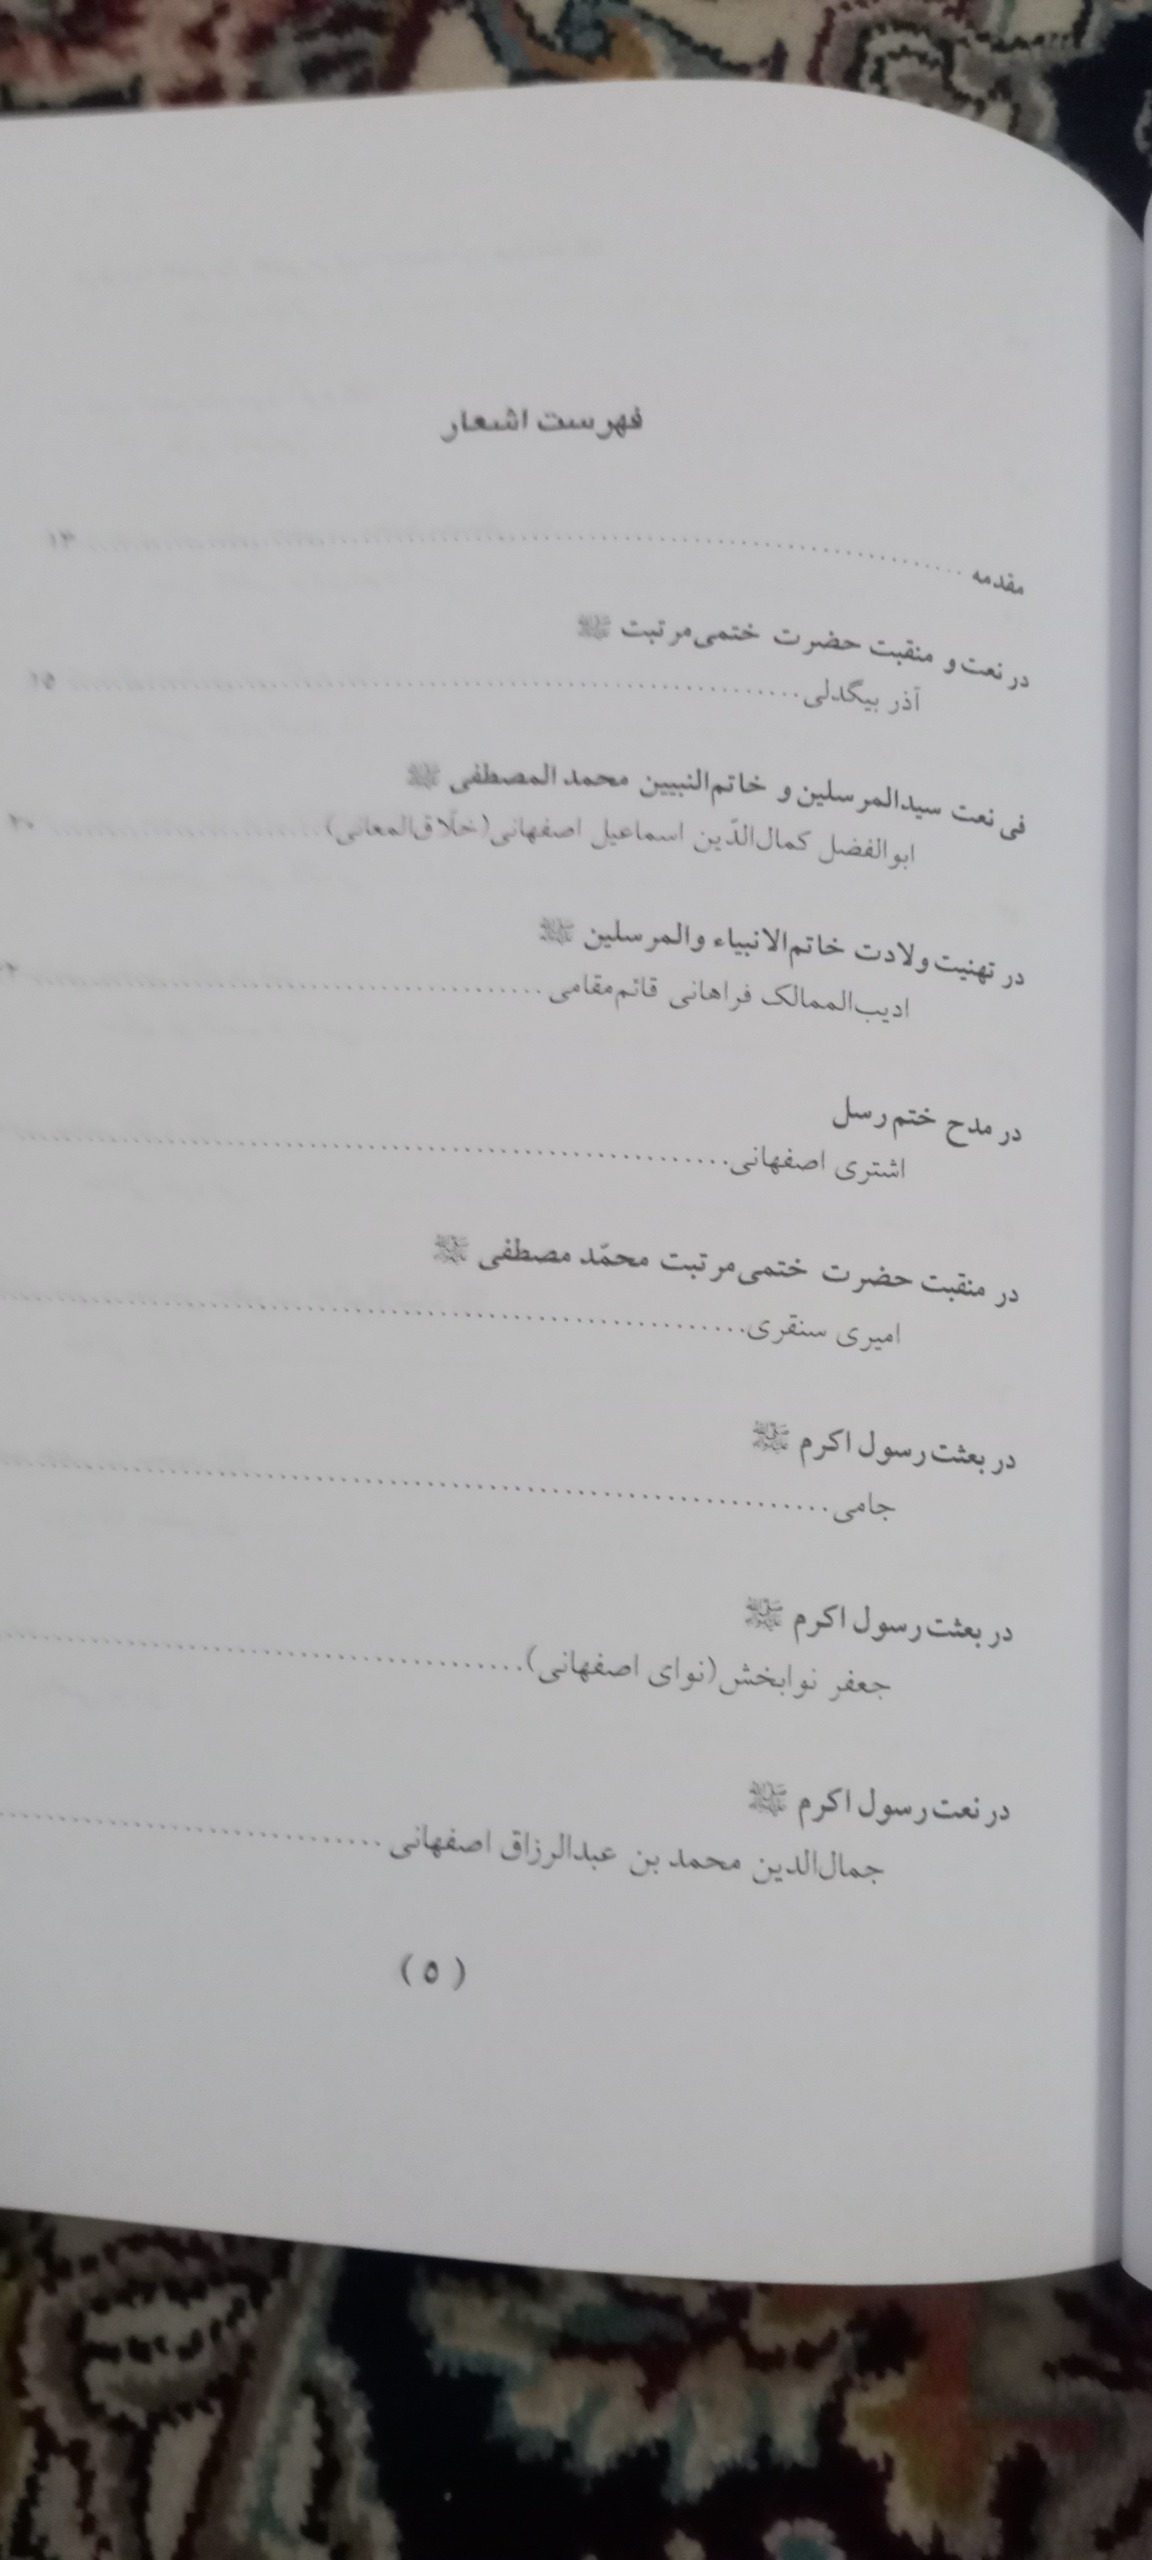 فهرست اشعار
مقدمه
در نعت و منقبت حضرت ختمی‌مرتبت ﷺ
آذر بیگدلی
فی نعت سیدالمرسلین و خاتم‌النبیین محمد المصطفی ﷺ
ابوالفضل کمال‌الدّین اسماعیل اصفهانی(خلّاق‌المعانی)
در تهنیت ولادت خاتم‌الانبیاء والمرسلین ﷺ
ادیب‌الممالک فراهانی قائم‌مقامی
در مدح ختم رسل
اشتری اصفهانی
در منقبت حضرت ختمی‌مرتبت محمّد مصطفی ﷺ
امیری سنقری
در بعثت رسول اکرم ﷺ
جامی
در بعثت رسول اکرم ﷺ
جعفر نوابخش(نوای اصفهانی)
در نعت رسول اکرم ﷺ
جمال‌الدین محمد بن عبدالرزاق اصفهانی
(۵)